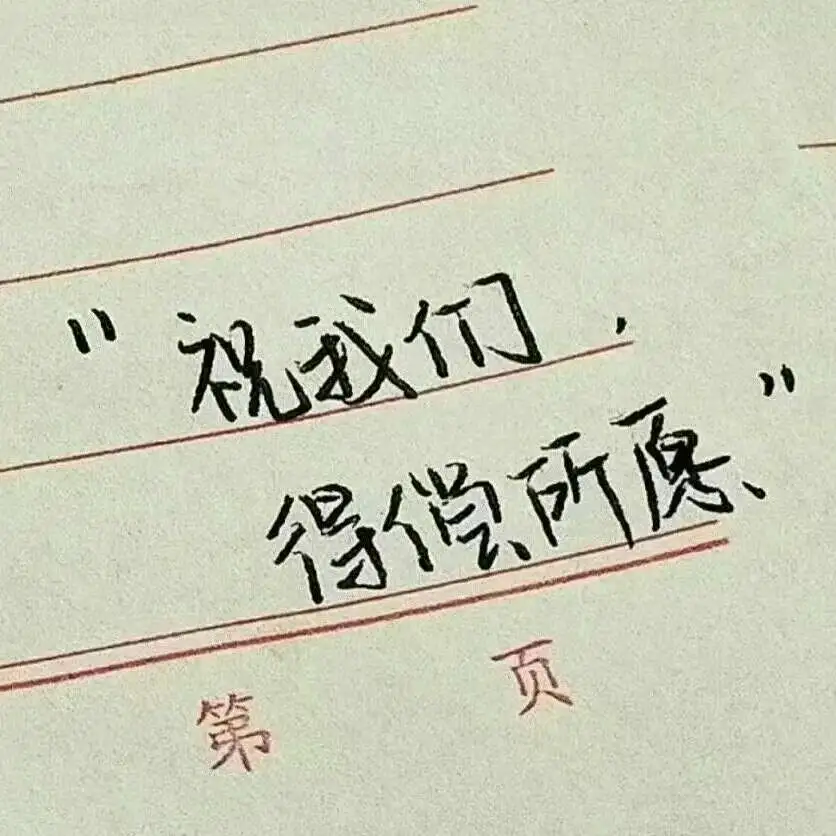 "祝我们,
得偿所愿"
第 页